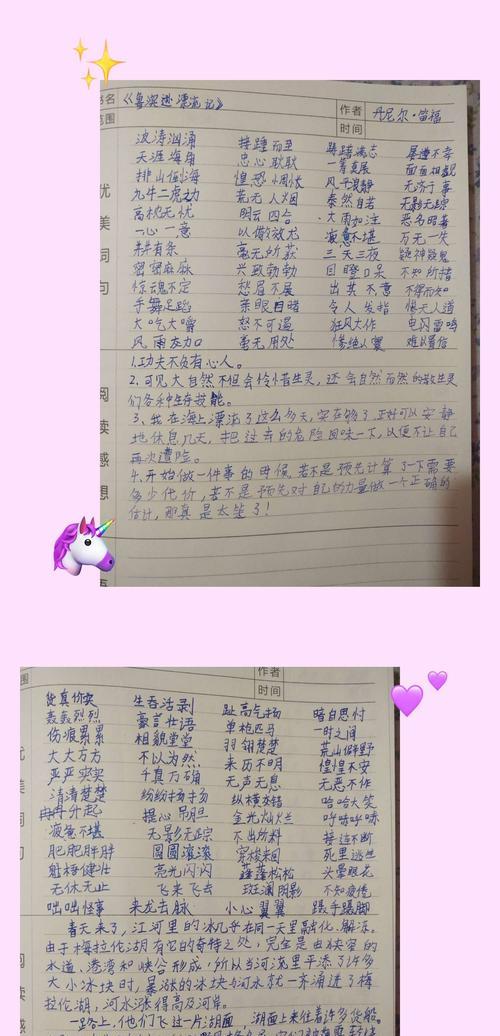 书名 《鲁滨逊漂流记》 作者 丹尼尔·笛福
范围 时间
波涛汹涌 接踵而至 踌躇满志 屡遭不幸
天涯海角 忠心耿耿 一筹莫展 面面相觑
排山倒海 惶恐惆怅 风平浪静 无济于事
九牛二虎之力 荒无人烟 泰然自若 无影无踪
高枕无忧 阴云四合 大雨如注 恶名昭著
一心一意 以儆效尤 疲惫不堪 万无一失
井井有条 毫无所获 三天三夜 疑神疑鬼
密密麻麻 兴致勃勃 目瞪口呆 不知所措
惊魂不定 愁眉不展 出其不意 不得而知
手舞足蹈 亲眼目睹 令人发指 惨无人道
大吃大嚼 怒不可遏 狂风大作 电闪雷鸣
风雨交加 毫无用处 惨绝人寰 难以置信
优美词句
阅读感想
1、功夫不负有心人。
2、可见大自然不但会怜惜生灵，还会自然而然的教生灵
们各种生存技能。
3、我在海上漂流了这么多天，实在够了，正好可以安静
地休息几天，把过去的危险回味一下，以便不让自己
再次遭险。
4、开始做一件事的时候，若不是预先计算一下需要
多少代价，若不是预先对自己的力量做一个正确的
估计，那真是太笨了！
围 作者
时间
货真价实 生吞活剥 趾高气扬 暗自思忖
轰轰烈烈 豪言壮语 单枪匹马 一时之间
伤痕累累 相貌堂堂 羽翎楚楚 荒山僻野
大大方方 不以为然 来历不明 惶惶不安
严严实实 千真万确 无声无息 无恶不作
清清楚楚 纷纷扬扬 纵横交错 哈哈大笑
冉冉升起 提心吊胆 金光灿烂 呼哧呼哧
疲惫不堪 无影无踪 不出所料 接连不断
肥肥胖胖 圆圆滚滚 穿梭来回 死里逃生
身强健壮 亮光闪闪 蓬蓬松松 头晕眼花
无休无止 飞来飞去 斑斓阴影 不知疲倦
咄咄怪事 来龙去脉 小心翼翼 蹑手蹑脚
春天来了，江河里的冰几乎在同一天里融化、解冻。
由于梅拉伦湖有它的奇特之处，完全是由狭窄的
水道、港湾和峡谷形成，所以当河流里平添了许多
大小冰块时，暴涨的冰块与河水就一齐涌进了梅
拉伦湖，河水涨得高及河岸。
一路上，他们飞过一片湖面，湖面上来往着许多货船。